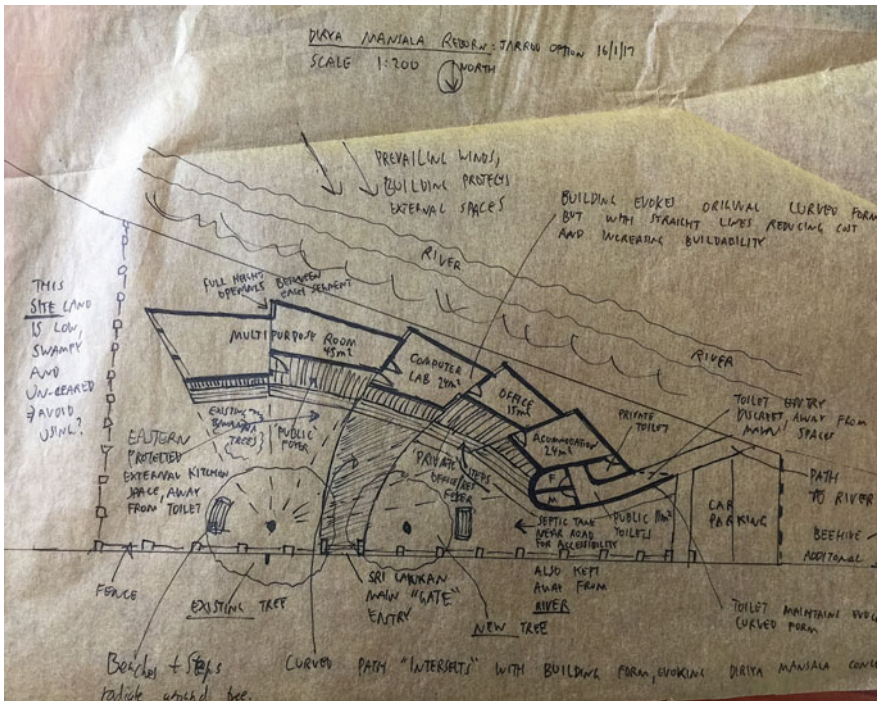 DIRIYA MANSALA REBORN: JARROD OPTION 16/1/17
SCALE 1:200
NORTH
PREVAILING WINDS,
BUILDING PROTECTS
EXTERNAL SPACES
BUILDING EVOKES ORIGINAL CURVED FORM
BUT WITH STRAIGHT LINES REDUCING COST
AND INCREASING BUILDABILITY
RIVER
RIVER
THIS
SITE LAND
IS LOW,
SWAMPY
AND
UN-CLEARED
AVOID
USING?
FULL HEIGHT
OPENINGS BETWEEN
EACH SEGMENT
MULTIPURPOSE ROOM
45m²
COMPUTER
LAB 24m²
OFFICE
15m²
ACOMMODATION
24m²
PRIVATE
TOILET
TOILET ENTRY
DISCREET AWAY FROM
MAIN SPACES
EXISTING
BANANA
TREES
"PUBLIC"
FOYER
EASTERN
PROTECTED
EXTERNAL KITCHEN
SPACE, AWAY
FROM TOILET
PRIVATE STEPS
OFFICE/RES
FOYER
F
M
PUBLIC 11m²
TOILETS
SEPTIC TANK
NEAR ROAD
FOR ACCESSIBILITY
ALSO KEPT
AWAY FROM
RIVER
CAR
PARKING
PATH
TO RIVER
BEEHIVE
ADDITIONAL
FENCE
EXISTING TREE
SRI LANKAN
MAIN "GATE"
ENTRY
NEW TREE
TOILET MAINTAINS
CURVED FORM
Benches + Steps
radiate around tree.
CURVED PATH "INTERSECTS" WITH BUILDING FORM, EVOKING DIRIYA MANSALA